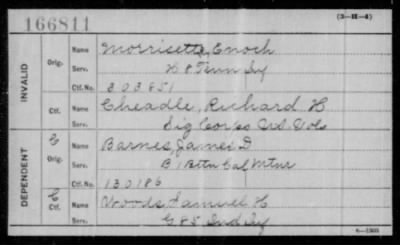 166811
(3-H-4)
INVALID
Orig.
Name Morrisette, Enoch
Serv. H 8 Tenn Inf
Ctf. No. 303651
Ctf.
Name Cheadle, Richard H
Serv. Sig Corps U.S. Vols
DEPENDENT
C Orig.
Name Barnes, James D
Serv. B, 1 Bttn Cal Mtnr
Ctf. No. 130186
C Ctf.
Name Woods Samuel H
Serv. G 85 Ind Inf